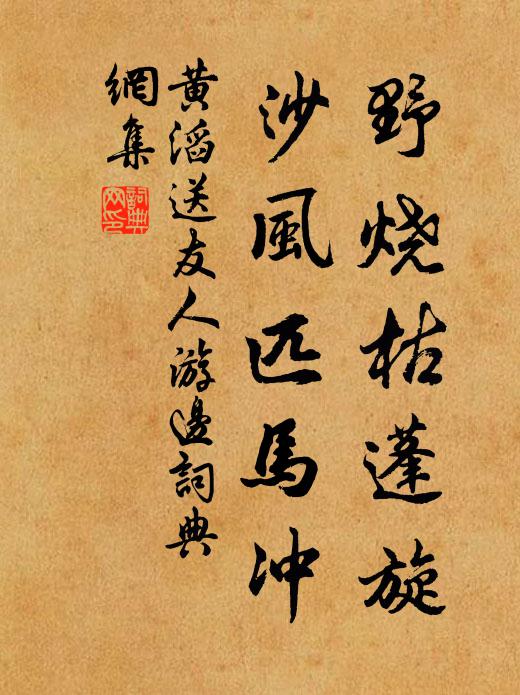 野烧枯蓬旋
沙風匹馬冲
黄滔送友人游邊詞典
網集
詞典
网印